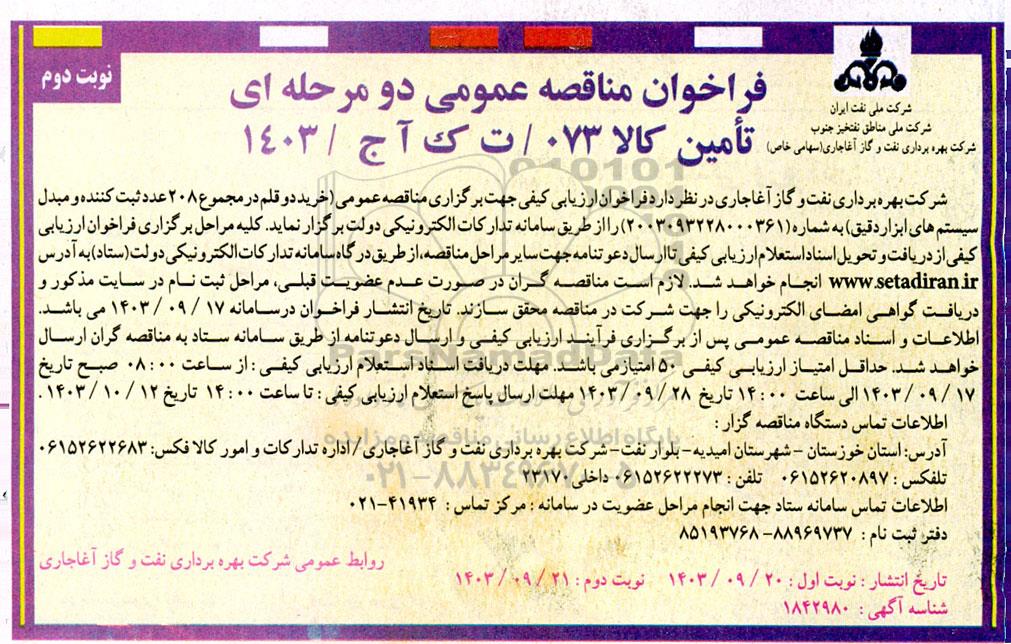 نوبت دوم
شرکت ملی نفت ایران
شرکت ملی مناطق نفتخیز جنوب
شرکت بهره برداری نفت و گاز آغاجاری(سهامی خاص)
فراخوان مناقصه عمومی دو مرحله ای
تأمین کالا ۰۷۳ / ت ک آ ج / ۱۴۰۳
شرکت بهره برداری نفت و گاز آغاجاری در نظر دارد فراخوان ارزیابی کیفی جهت برگزاری مناقصه عمومی (خرید دو قلم در مجموع ۲۰۸ عدد ثبت کننده و مبدل
سیستم های ابزار دقیق) به شماره (۲۰۰۳۰۹۳۲۲۸۰۰۰۳۶۱) را از طریق سامانه تدارکات الکترونیکی دولت برگزار نماید. کلیه مراحل برگزاری فراخوان ارزیابی
کیفی از دریافت و تحویل اسناد استعلام ارزیابی کیفی تا ارسال دعوتنامه جهت سایر مراحل مناقصه، از طریق درگاه سامانه تدارکات الکترونیکی دولت (ستاد) به آدرس
www.setadiran.ir انجام خواهد شد. لازم است مناقصه گران در صورت عدم عضویت قبلی، مراحل ثبت نام در سایت مذکور و
دریافت گواهی امضای الکترونیکی را جهت شرکت در مناقصه محقق سازند. تاریخ انتشار فراخوان درسامانه ۱۷ / ۰۹ / ۱۴۰۳ می باشد.
اطلاعات و اسناد مناقصه عمومی پس از برگزاری فرآیند ارزیابی کیفی و ارسال دعوتنامه از طریق سامانه ستاد به مناقصه گران ارسال
خواهد شد. حداقل امتیاز ارزیابی کیفی ۵۰ امتیازمی باشد. مهلت دریافت اسناد استعلام ارزیابی کیفی : از ساعت ۰۸:۰۰ صبح تاریخ
۱۷ / ۰۹ / ۱۴۰۳ الی ساعت ۱۴:۰۰ تاریخ ۲۸ / ۰۹ / ۱۴۰۳ مهلت ارسال پاسخ استعلام ارزیابی کیفی : تا ساعت ۱۴:۰۰ تاریخ ۱۲ / ۱۰ / ۱۴۰۳ .
اطلاعات تماس دستگاه مناقصه گزار :
آدرس: استان خوزستان - شهرستان امیدیه - بلوار نفت - شرکت بهره برداری نفت و گاز آغاجاری / اداره تدارکات و امور کالا فکس: ۰۶۱۵۲۶۲۲۶۸۳
تلفکس : ۰۶۱۵۲۶۲۰۸۹۷ تلفن : ۰۶۱۵۲۶۲۲۲۷۳ داخلی ۲۳۱۷۰
اطلاعات تماس سامانه ستاد جهت انجام مراحل عضویت در سامانه : مرکز تماس : ۴۱۹۳۴-۰۲۱
دفتر ثبت نام : ۸۸۹۶۹۷۳۷- ۸۵۱۹۳۷۶۸
روابط عمومی شرکت بهره برداری نفت و گاز آغاجاری
تاریخ انتشار : نوبت اول : ۲۰ / ۰۹ / ۱۴۰۳ نوبت دوم : ۲۱ / ۰۹ / ۱۴۰۳
شناسه آگهی : ۱۸۴۲۹۸۰
ParsNamadData
پایگاه اطلاع رسانی مناقصه و مزایده